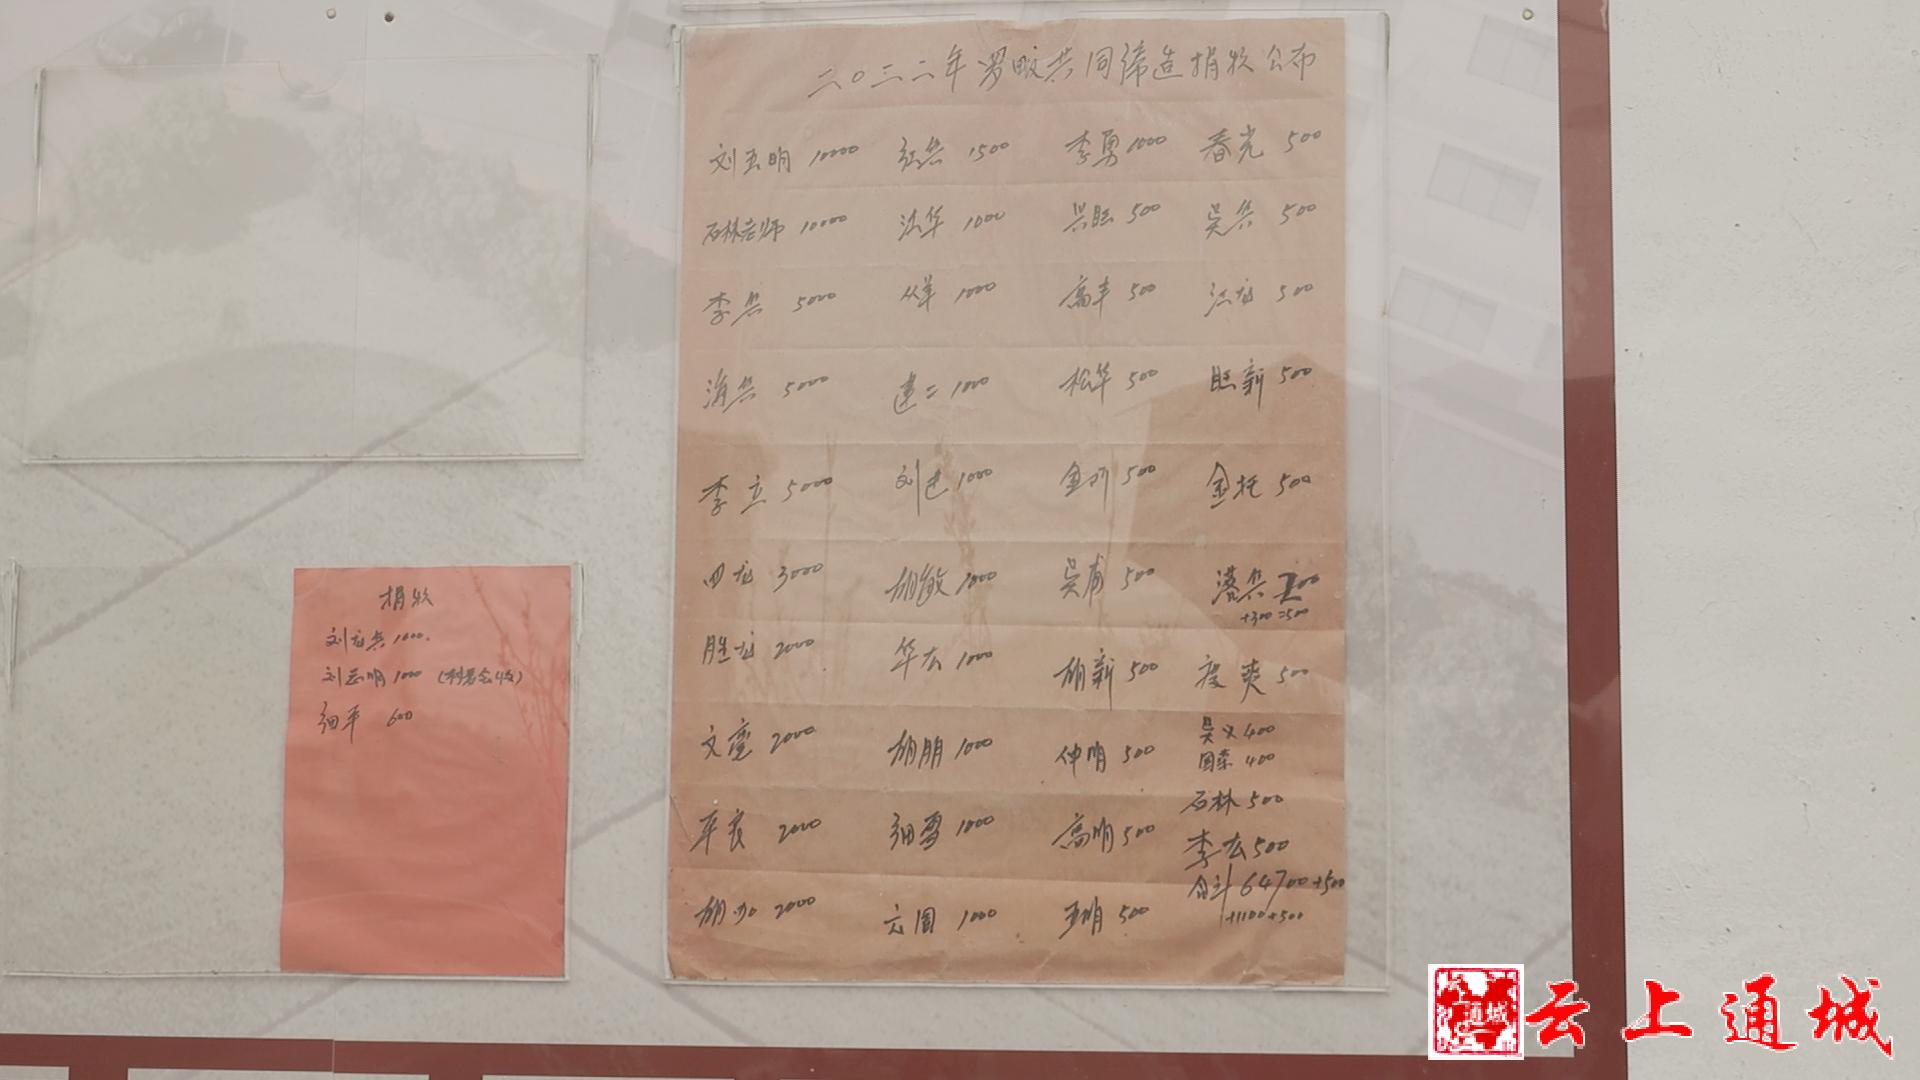 二〇二二年罗畈共同缔造捐收公布
刘五明 10000 红兵 1500 李勇 1000 春光 500
石林老师 10000 法华 1000 吴旺 500 吴兵 500
李兵 5000 1000 高丰 500 江龙 500
海兵 5000 建二 1000 松华 500 旺新 500
李立 5000 刘建 1000 金 500 金托 500
四龙 3000 胡敏 1000 吴甫 500 落兵 200
+300=500
胜龙 2000 华宏 1000 胡新 500 度爽 500
文 2000 胡朋 1000 仲明 500 吴义 400
国泰 400
平良 2000 细雪 1000 高明 500 石林 500
李宏 500
胡加 2000 元国 1000 500 合计 64700+500
+1100+500
捐收
刘龙兵 1000.
刘志明 1000
细平 600
通城
云上通城